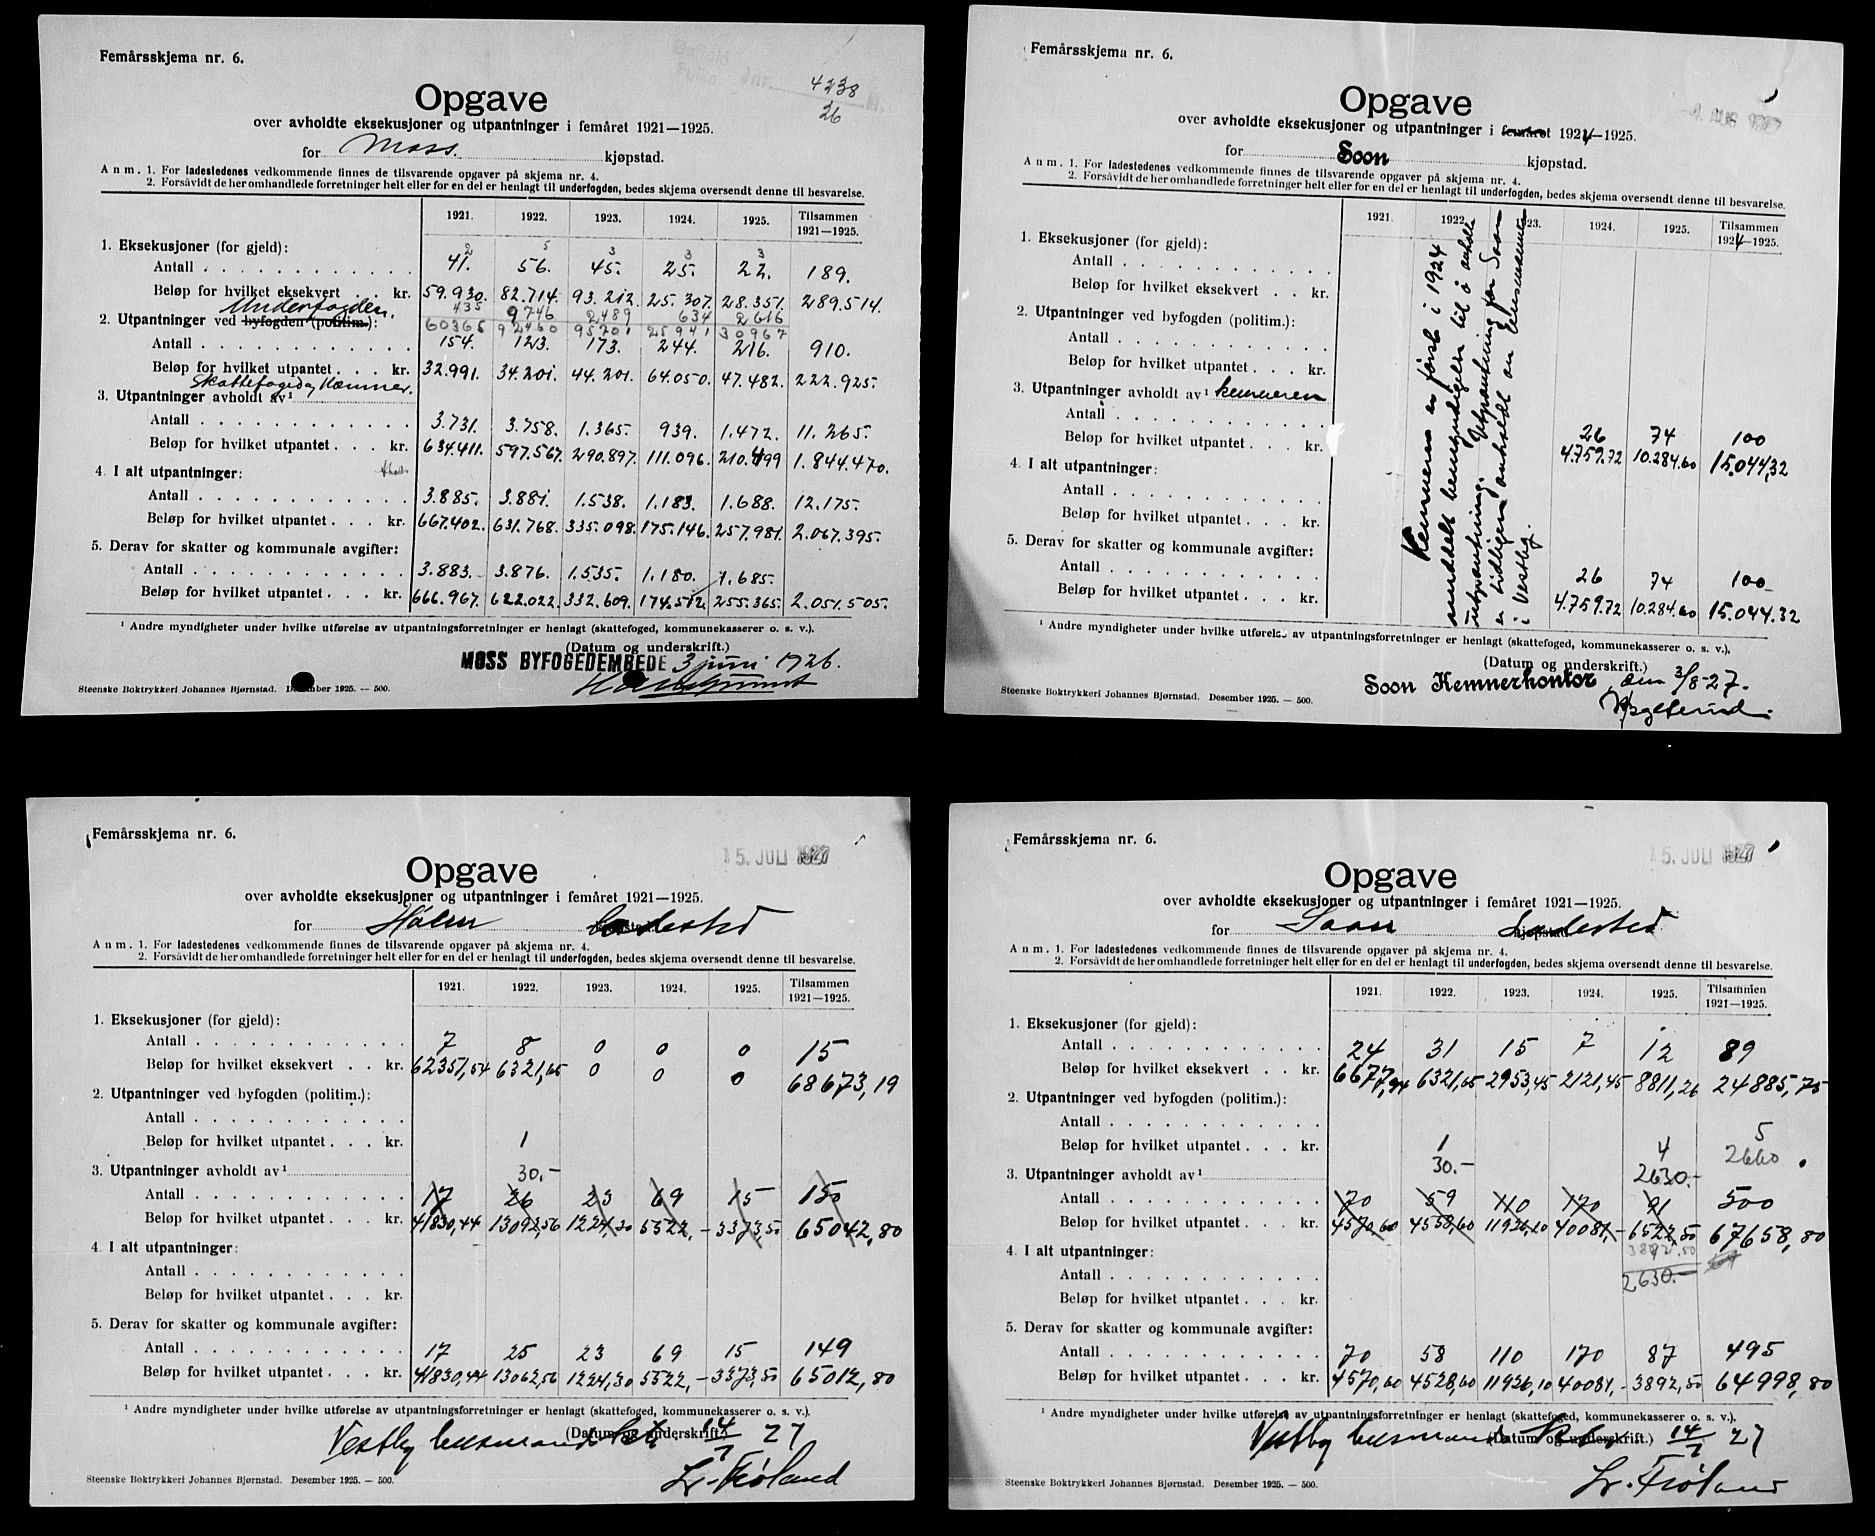 Femårsskjema nr. 6.
4238
26
Opgave
over avholdte eksekusjoner og utpantninger i femåret 1921—1925.
for Moss. kjøpstad.
Anm. 1. For ladestedenes vedkommende finnes de tilsvarende opgaver på skjema nr. 4.
2. Forsåvidt de her omhandlede forretninger helt eller for en del er henlagt til underfogden, bedes skjema oversendt denne til besvarelse.
1921. 1922. 1923. 1924. 1925. Tilsammen 1921—1925.
1. Eksekusjoner (for gjeld):
2 5 3 3 3
Antall 41. 56. 45. 25. 22. 189.
Beløp for hvilket eksekvert kr. 59.930. 82.714. 93.212. 25.307. 28.351. 289.514.
Underfogden.
435 9746 2489 634 2616
2. Utpantninger ved byfogden (politim.):
60365 92460 95701 25941 30967
Antall 154. 123. 173. 244. 216. 910.
Beløp for hvilket utpantet kr. 32.991. 34.201. 44.201. 64.050. 47.482. 222.925.
Skattefoged og Kæmner.
3. Utpantninger avholdt av¹
Antall 3.731. 3.758. 1.365. 939. 1.472. 11.265.
Beløp for hvilket utpantet kr. 634.411. 597.567. 290.897. 111.096. 210.499 1.844.470.
4. I alt utpantninger:
Antall 3.885. 3.881. 1.538. 1.183. 1.688. 12.175.
Beløp for hvilket utpantet kr. 667.402. 631.768. 335.098. 175.146. 257.981. 2.067.395.
5. Derav for skatter og kommunale avgifter:
Antall 3.883. 3.876. 1.535. 1.180. 1.685.
Beløp for hvilket utpantet kr. 666.967. 622.022. 332.609. 174.512. 255.365. 2.051.505.
¹ Andre myndigheter under hvilke utførelse av utpantningsforretninger er henlagt (skattefoged, kommunekasserer o. s. v.).
(Datum og underskrift.)
MOSS BYFOGEDEMBEDE 3 juni 1926.
Steenske Boktrykkeri Johannes Bjørnstad. Desember 1925. — 500.
Femårsskjema nr. 6.
4. AUG 1927
Opgave
over avholdte eksekusjoner og utpantninger i femåret 1924—1925.
for Soon kjøpstad.
Anm. 1. For ladestedenes vedkommende finnes de tilsvarende opgaver på skjema nr. 4.
2. Forsåvidt de her omhandlede forretninger helt eller for en del er henlagt til underfogden, bedes skjema oversendt denne til besvarelse.
1921. 1922. 1923. 1924. 1925. Tilsammen 1924—1925.
Kemneren er først i 1924
meddelt bemyndigelse til å avholde
utpantning. Utpantning for Soon
er tidligere avholdt av lensmannen
i Vestby.
1. Eksekusjoner (for gjeld):
Antall
Beløp for hvilket eksekvert kr.
2. Utpantninger ved byfogden (politim.):
Antall
Beløp for hvilket utpantet kr.
3. Utpantninger avholdt av¹ kemneren
Antall 26 74 100
Beløp for hvilket utpantet kr. 4.759.72 10.284.60 15.044,32
4. I alt utpantninger:
Antall
Beløp for hvilket utpantet kr.
5. Derav for skatter og kommunale avgifter:
Antall 26 74 100
Beløp for hvilket utpantet kr. 4.759.72 10.284.60 15.044.32
¹ Andre myndigheter under hvilke utførelse av utpantningsforretninger er henlagt (skattefoged, kommunekasserer o. s. v.).
(Datum og underskrift.)
Soon Kemnerkontor, den 3/8-27.
Steenske Boktrykkeri Johannes Bjørnstad. Desember 1925. — 500.
Femårsskjema nr. 6.
15. JULI 1927
Opgave
over avholdte eksekusjoner og utpantninger i femåret 1921—1925.
for Hølen Ladested
Anm. 1. For ladestedenes vedkommende finnes de tilsvarende opgaver på skjema nr. 4.
2. Forsåvidt de her omhandlede forretninger helt eller for en del er henlagt til underfogden, bedes skjema oversendt denne til besvarelse.
1921. 1922. 1923. 1924. 1925. Tilsammen 1921—1925.
1. Eksekusjoner (for gjeld):
Antall 7 8 0 0 0 15
Beløp for hvilket eksekvert kr. 62351,54 6321,65 0 0 0 68673,19
2. Utpantninger ved byfogden (politim.):
Antall
Beløp for hvilket utpantet kr. 1
3. Utpantninger avholdt av¹ 30.-
Antall 17 26 23 69 15 150
Beløp for hvilket utpantet kr. 41830,44 13092,56 1224,30 5522,- 3373,50 65042,80
4. I alt utpantninger:
Antall
Beløp for hvilket utpantet kr.
5. Derav for skatter og kommunale avgifter:
Antall 17 25 23 69 15 149
Beløp for hvilket utpantet kr. 41830,44 13062,56 1224,30 5522,- 3373,50 65012,80
¹ Andre myndigheter under hvilke utførelse av utpantningsforretninger er henlagt (skattefoged, kommunekasserer o. s. v.).
(Datum og underskrift.)
Vestby lensmannd 14/7 27
Steenske Boktrykkeri Johannes Bjørnstad. Desember 1925. — 500.
Lr. Frøland
Femårsskjema nr. 6.
15. JULI 1927
Opgave
over avholdte eksekusjoner og utpantninger i femåret 1921—1925.
for Soon kjøpstad. Ladested
Anm. 1. For ladestedenes vedkommende finnes de tilsvarende opgaver på skjema nr. 4.
2. Forsåvidt de her omhandlede forretninger helt eller for en del er henlagt til underfogden, bedes skjema oversendt denne til besvarelse.
1921. 1922. 1923. 1924. 1925. Tilsammen 1921—1925.
1. Eksekusjoner (for gjeld):
Antall 24 31 15 7 12 89
Beløp for hvilket eksekvert kr. 6677,94 6321,65 2953,45 2121,45 8811,26 24885,75
2. Utpantninger ved byfogden (politim.):
Antall 5
Beløp for hvilket utpantet kr. 1 4 2660
3. Utpantninger avholdt av¹ 30.- 2630.-
Antall 70 59 110 170 91 500
Beløp for hvilket utpantet kr. 4570,60 4558,60 11926,10 40081,- 6522,50 67658,80
4. I alt utpantninger: 3892,50
Antall 2630.-
Beløp for hvilket utpantet kr.
5. Derav for skatter og kommunale avgifter:
Antall 70 58 110 170 87 495
Beløp for hvilket utpantet kr. 4570,60 4528,60 11926,10 40081,- 3892,50 64998,80
¹ Andre myndigheter under hvilke utførelse av utpantningsforretninger er henlagt (skattefoged, kommunekasserer o. s. v.).
(Datum og underskrift.)
Vestby lensmannd 14/7 27
Steenske Boktrykkeri Johannes Bjørnstad. Desember 1925. — 500.
Lr. Frøland